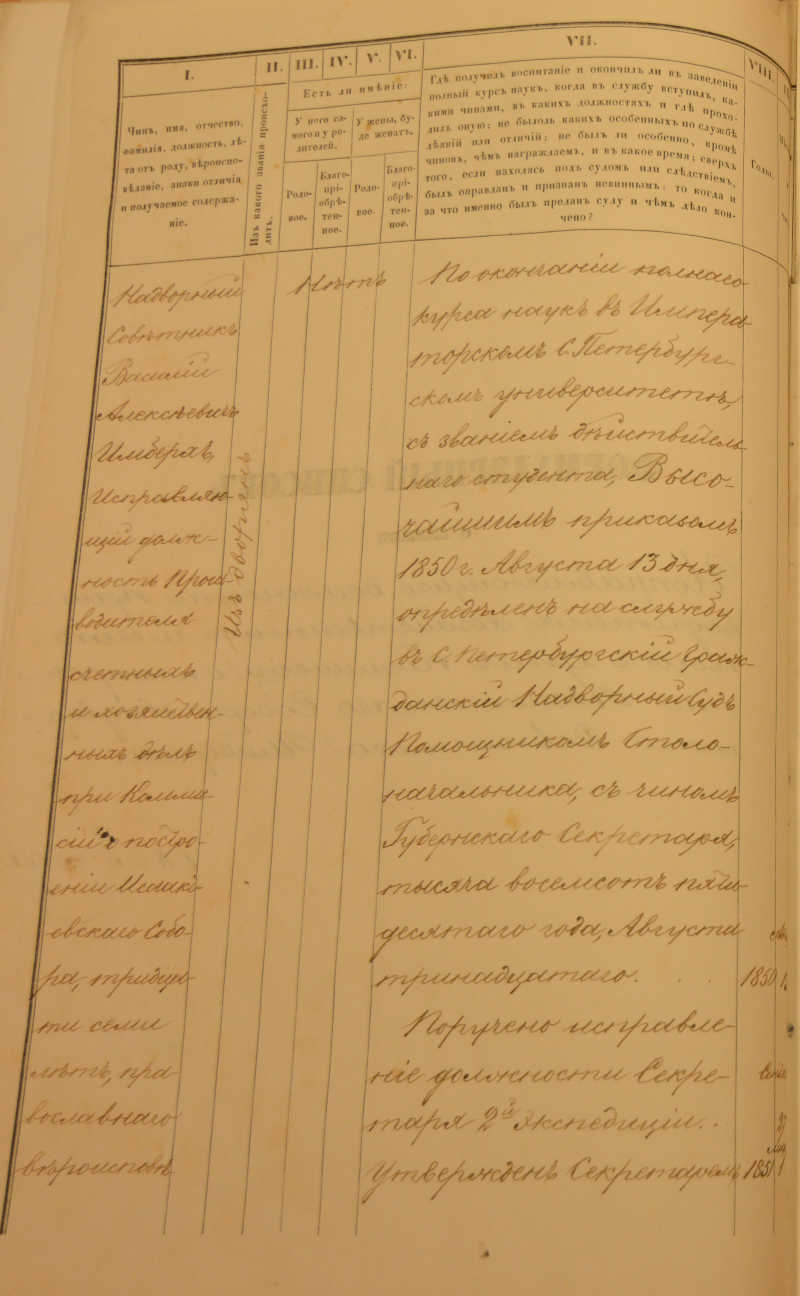 I.
II.
III.
IV.
V.
VI.
VII.
VIII.
Чинъ, имя, отчество,
фамилія, должность, лѣ-
та отъ роду, вѣроиспо-
вѣданіе, знаки отличія
и получаемое содержа-
ніе.
Изъ какого званія происхо-
дитъ.
Есть ли имѣніе:
У него са-
мого и у ро-
дителей.
У жены, бу-
де женатъ.
Родо-
вое.
Благо-
прі-
обрѣ-
тен-
ное.
Родо-
вое.
Благо-
прі-
обрѣ-
тен-
ное.
Гдѣ получилъ воспитаніе и окончилъ ли въ заведеніи
полный курсъ наукъ, когда въ службу вступилъ, ка-
кими чинами, въ какихъ должностяхъ и гдѣ прохо-
дилъ оную; не былоль какихъ особенныхъ по службѣ
дѣяній или отличій; не былъ ли особенно, кромѣ
чиновъ, чѣмъ награждаемъ, и въ какое время; сверхъ
того, если находясь подъ судомъ или слѣдствіемъ,
былъ оправданъ и признанъ невиннымъ: то когда и
за что именно былъ преданъ суду и чѣмъ дѣло кон-
чено?
Годы.
Надворный
Совѣтникъ
Василій
Алексѣевичъ
Имберхъ,
Исправляю-
щій долж-
ность Произ-
водителя
счетныхъ
и хозяйствен-
ныхъ дѣлъ
при Комми-
сіи о постро-
еніи Исаакі-
евскаго Собо-
ра, тридца-
ти семи
лѣтъ, пра-
вославнаго
вѣроисповѣ
Изъ дворянъ
Нѣтъ
По окончаніи полнаго
курса наукъ въ Импера-
торскомъ С. Петербург-
скомъ университетѣ,
съ званіемъ дѣйствитель-
наго студента, Высо-
чайшимъ приказомъ
1850 г. Августа 13 дня,
опредѣленъ на службу
въ С. Петербургскій Граж-
данскій Надворный Судъ
Помощникомъ Столо-
начальника, съ чиномъ
Губернскаго Секретаря,
тысяча восемсотъ пяти-
десятаго года, Августа
тринадцатаго. . .
1850
Поручено исправле-
ніе должности Секре-
таря 2й экспедиціи. .
Утвержденъ Секретаремъ
1851